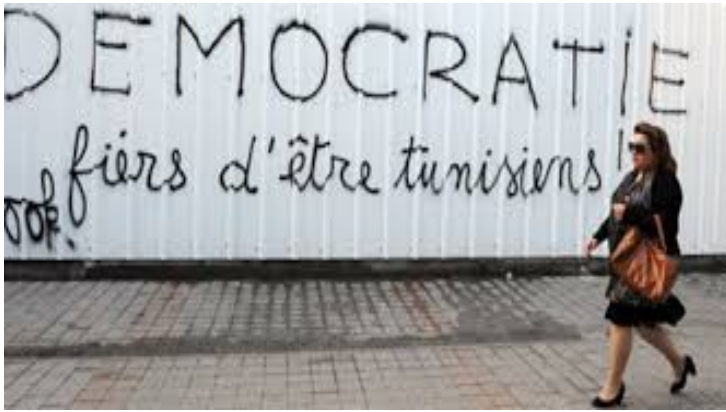 DEMOCRATIE
fiérs d'être tunisiens!